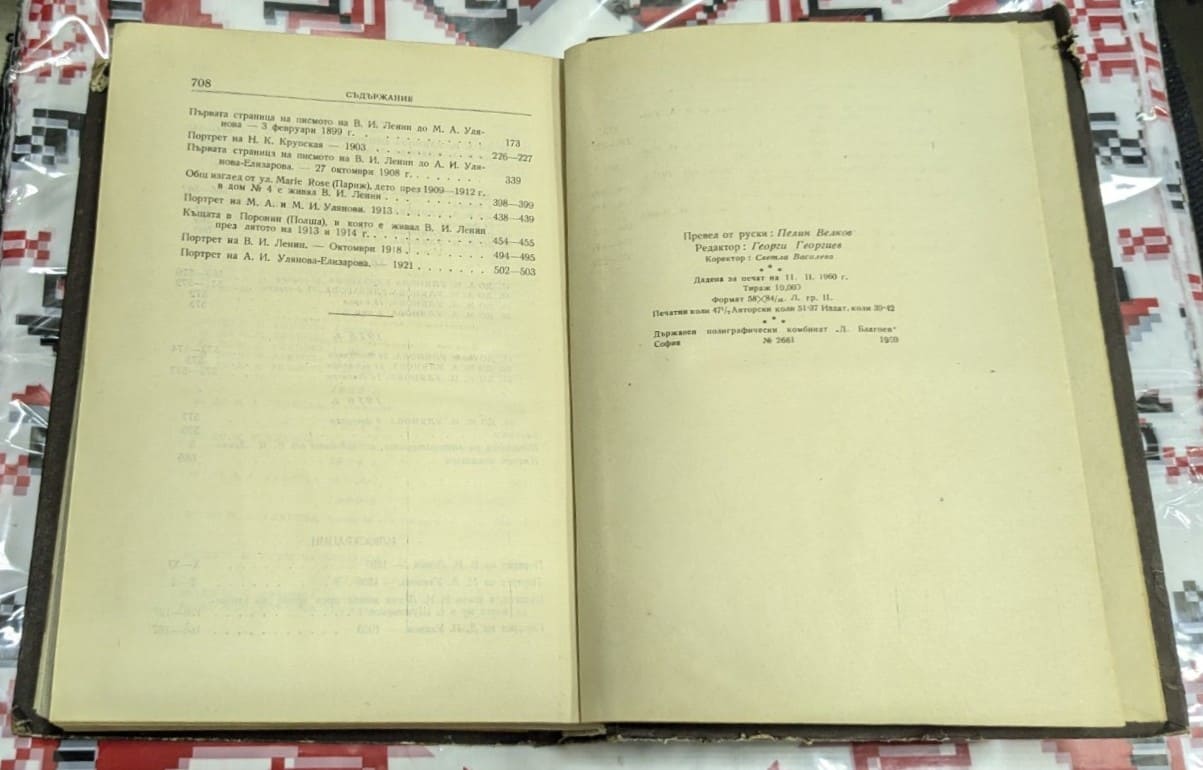 708
СЪДЪРЖАНИЕ
Първата страница на писмото на В. И. Ленин до М. А. Уля-
нова — 3 февруари 1899 г. . . . . . . . . . . . 173
Портрет на Н. К. Крупская — 1903 . . . . . . . . . . . 226—227
Първата страница на писмото на В. И. Ленин до А. И. Уля-
нова-Елизарова. — 27 октомври 1908 г. . . . . . 339
Общ изглед от ул. Marie Rose (Париж), дето през 1909—1912 г.
в дом № 4 е живял В. И. Ленин . . . . . . . . . 398—399
Портрет на М. А. и М. И. Улянови. 1913 . . . . . . . . 438—439
Къщата в Поронин (Полша), в която е живял В. И. Ленин
през лятото на 1913 и 1914 г. . . . . . . . . . 454—455
Портрет на В. И. Ленин. — Октомври 1918 . . . . . . . 494—495
Портрет на А. И. Улянова-Елизарова. — 1921 . . . . . . . 502—503
Превел от руски: Пелин Велков
Редактор: Георги Георгиев
Коректор: Светла Василева
* * *
Дадена за печат на 11. II. 1960 г.
Тираж 10,000
Формат 58×84/₁₆. Л. гр. II.
Печатни коли Авторски коли 51·37 Издат. коли 39·42
* * *
Държавен полиграфически комбинат „Д. Благоев"
София № 2661